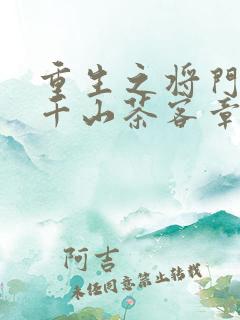 重生之将门
千山茶客章
阿吉
未经同意禁止转载